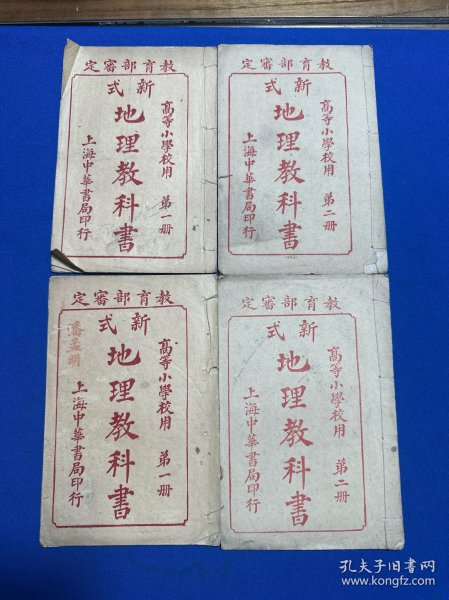 教育部審定
新式
高等小學校用 第一册
地理教科書
上海中華書局印行
教育部審定
新式
高等小學校用 第二册
地理教科書
上海中華書局印行
教育部審定
新式
高等小學校用 第一册
地理教科書
上海中華書局印行
教育部審定
新式
高等小學校用 第二册
地理教科書
上海中華書局印行
孔夫子旧书网
www.kongfz.com